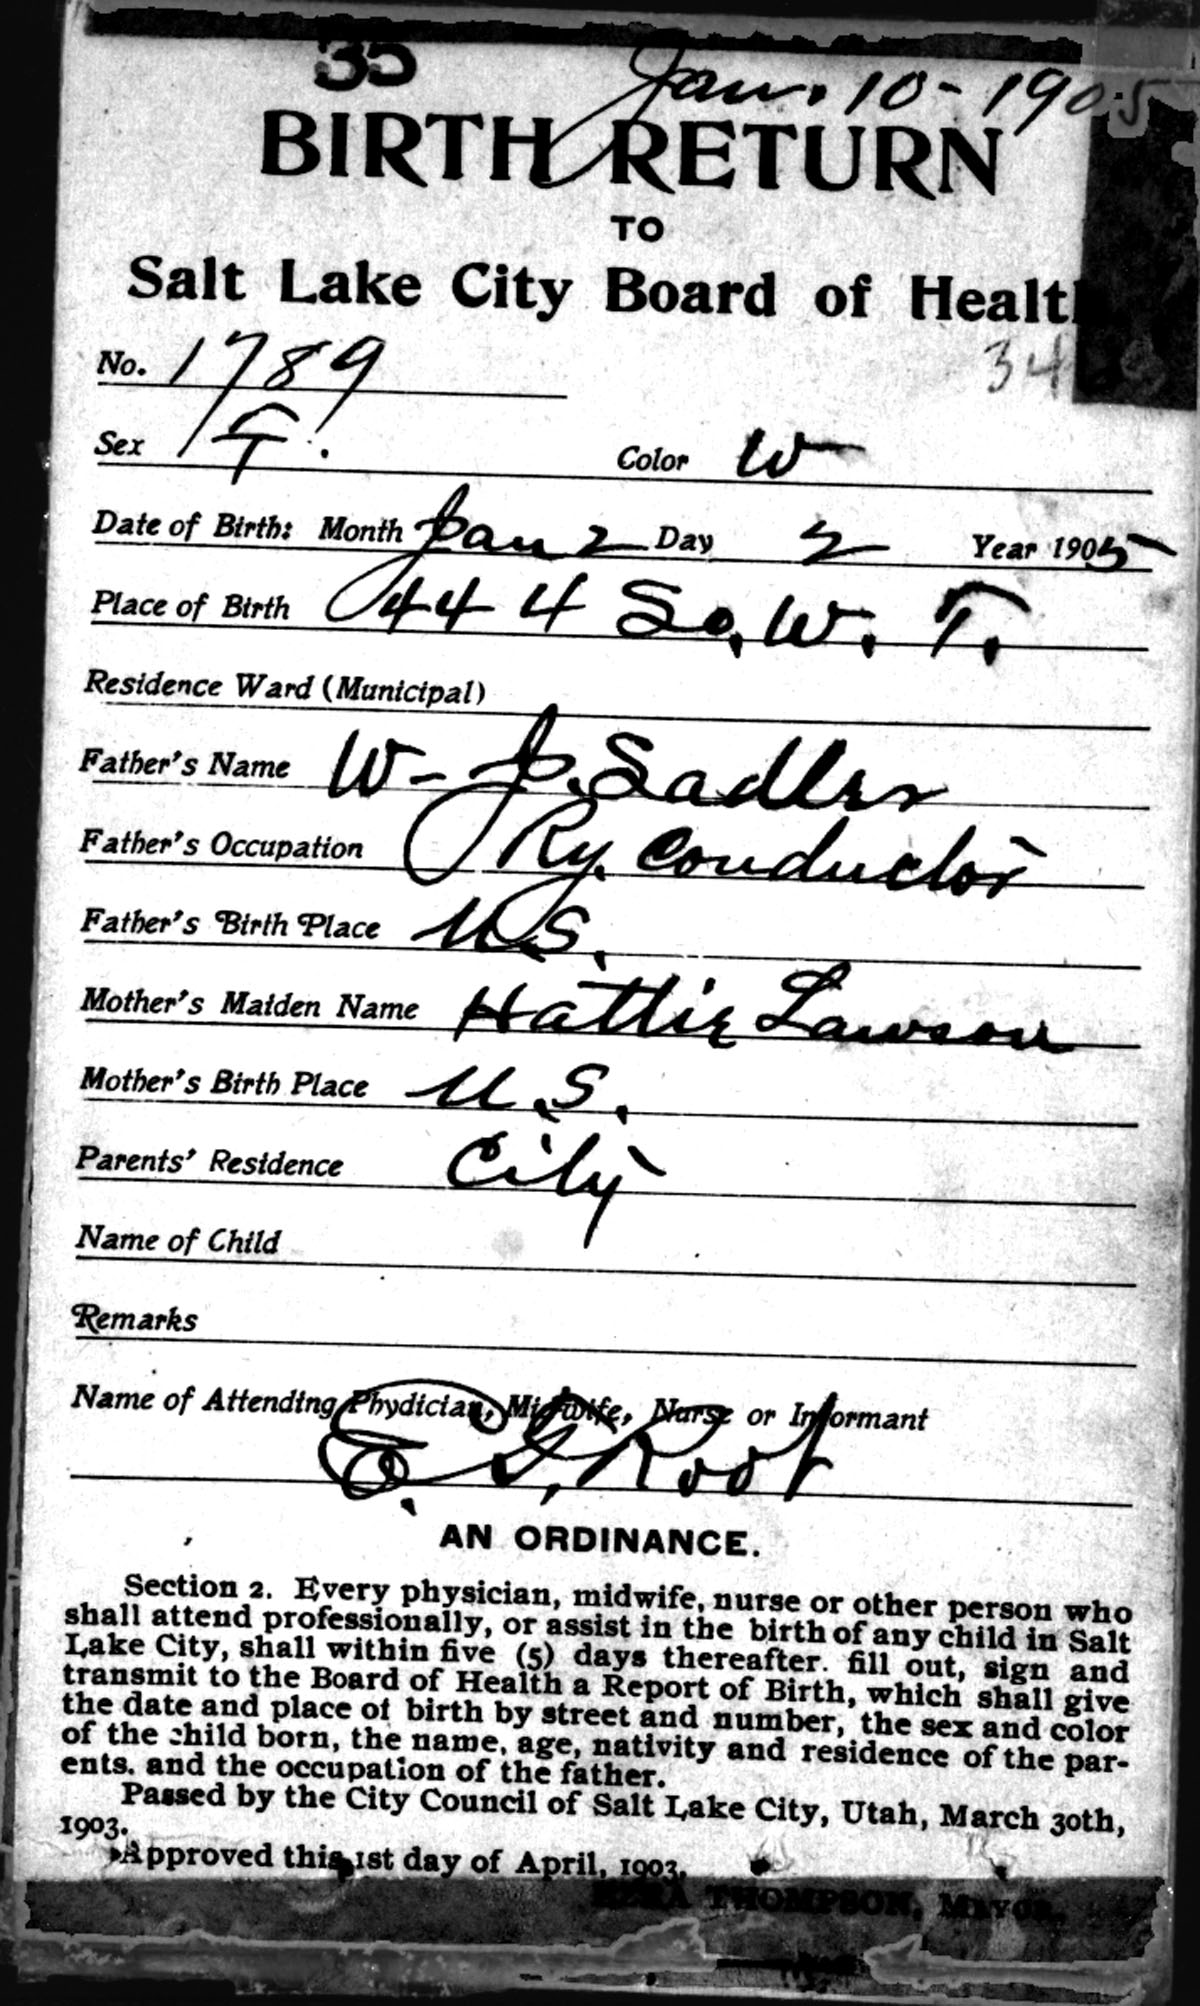 35 Jan. 10-1905
BIRTH RETURN
TO
Salt Lake City Board of Health
No. 1789
34
Sex F. Color W
Date of Birth: Month Jan 2 Day 2 Year 1905
Place of Birth 444 So. W. T.
Residence Ward (Municipal)
Father's Name W- J. Sadler
Father's Occupation Ry. Conductor
Father's Birth Place U.S.
Mother's Maiden Name Hattie Lawson
Mother's Birth Place U.S.
Parents' Residence City
Name of Child
Remarks
Name of Attending Phydician, Midwife, Nurse or Informant
Root
AN ORDINANCE.
Section 2. Every physician, midwife, nurse or other person who
shall attend professionally, or assist in the birth of any child in Salt
Lake City, shall within five (5) days thereafter. fill out, sign and
transmit to the Board of Health a Report of Birth, which shall give
the date and place of birth by street and number, the sex and color
of the child born, the name, age, nativity and residence of the par-
ents. and the occupation of the father.
Passed by the City Council of Salt Lake City, Utah, March 30th,
1903.
Approved this 1st day of April, 1903.
EZRA THOMPSON, Mayor.